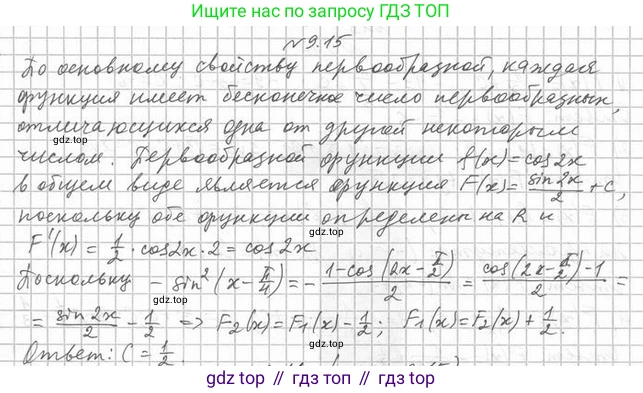 Ищите нас по запросу ГДЗ ТОП
№ 9.15
По основному свойству первообразной, каждая
функция имеет бесконечное число первообразных,
отличающихся одна от другой некоторым
числом. Первообразной функции f(x) = cos2x
в общем виде является функция F(x) = sin2x/2 + C,
поскольку обе функции определены на R и
F'(x) = 1/2 · cos2x · 2 = cos2x
Поскольку - sin²(x - π/4) = - (1-cos(2x - π/2))/2 = (cos(2x - π/2) - 1)/2 =
= sin2x/2 - 1/2 => F₂(x) = F₁(x) - 1/2; F₁(x) = F₂(x) + 1/2.
Ответ: C = 1/2.
gdz.top
gdz.top
gdz.top
gdz.top
gdz.top
gdz.top
gdz.top // гдз.топ // гдз.top